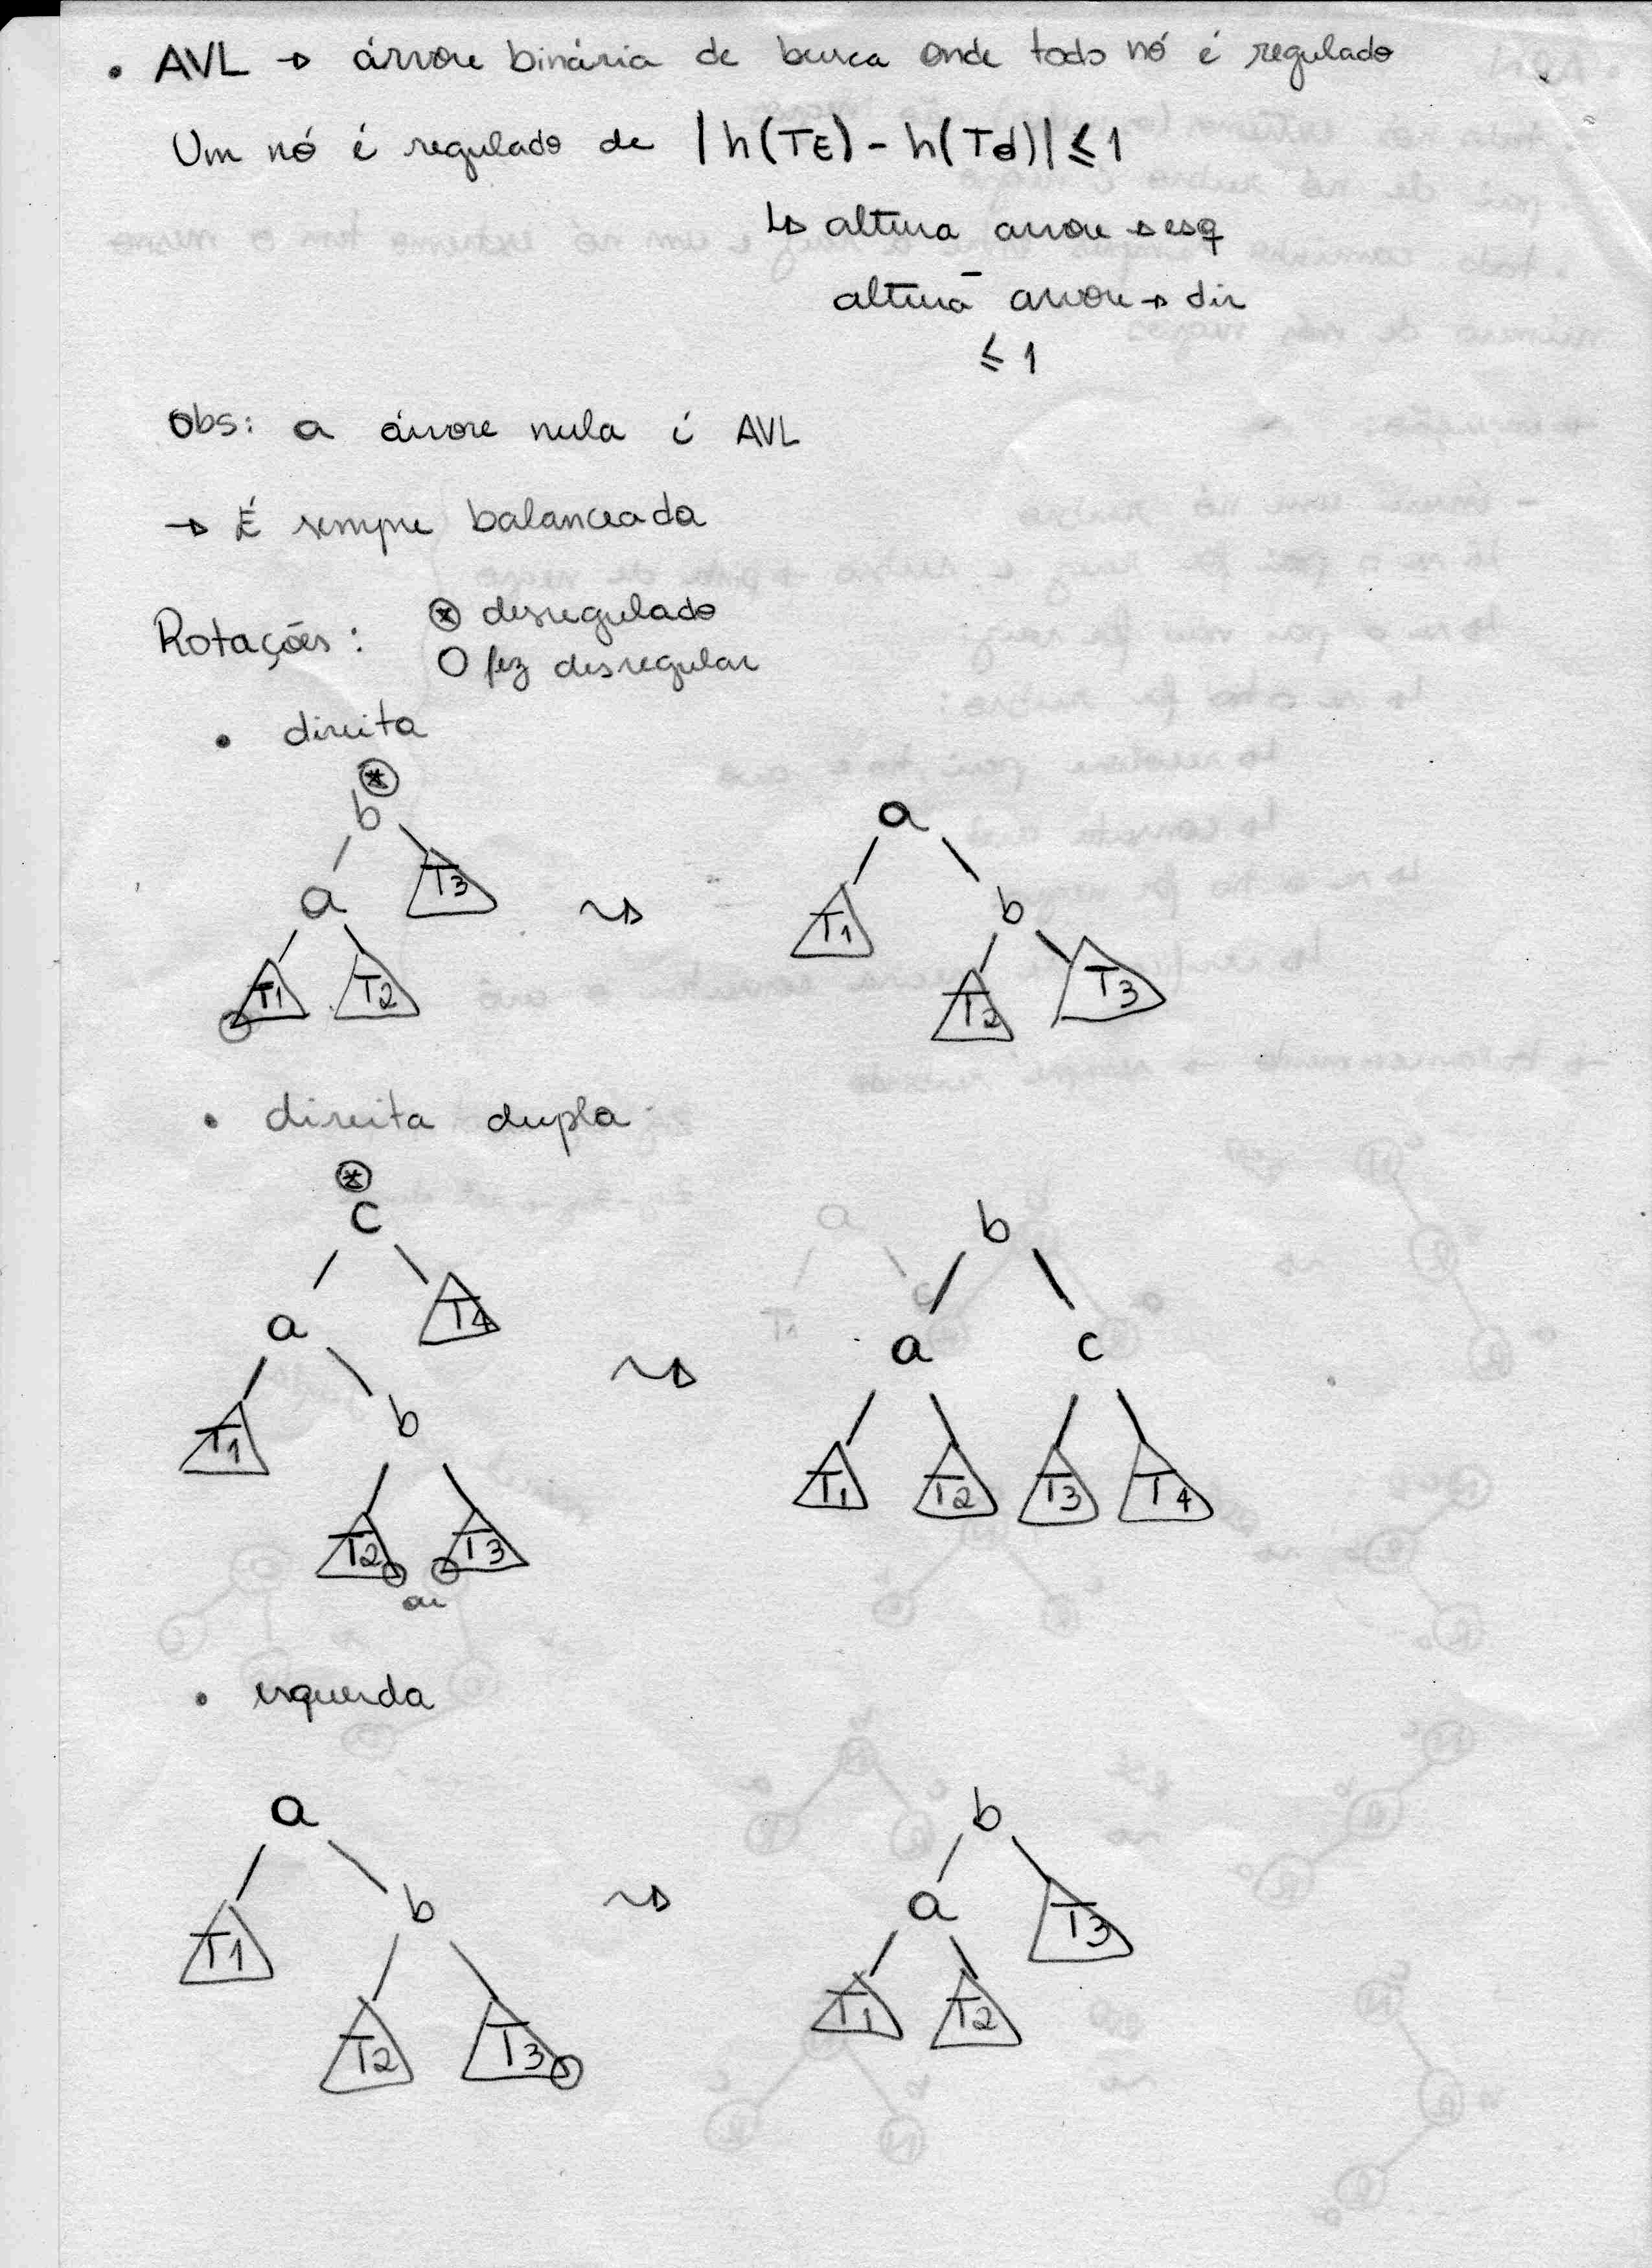 • AVL → árvore binária de busca onde todo nó é regulado
Um nó é regulado de |h(TE) - h(Td)| ≤ 1
↳ altura arvore → esq
-
altura arvore → dir
≤ 1
Obs: a árvore nula é AVL
→ É sempre balanceada
Rotações: ⊛ desregulado
O fez desregular
• direita
⊛
b a
a T3 ⇝ T1 b
T1 T2 T2 T3
• direita dupla
⊛
c b
a T4 ⇝ a c
T1 b T1 T2 T3 T4
T2 T3
ou
• esquerda
a b
T1 b ⇝ a T3
T2 T3 T1 T2